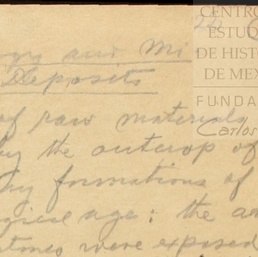 CENTRO
ESTUD
DE HISTO
DE MEX
FUNDA
Carlos
and Mi
Deposits
of raw materials
by the outcrop of
formations of
age: the
were exposed